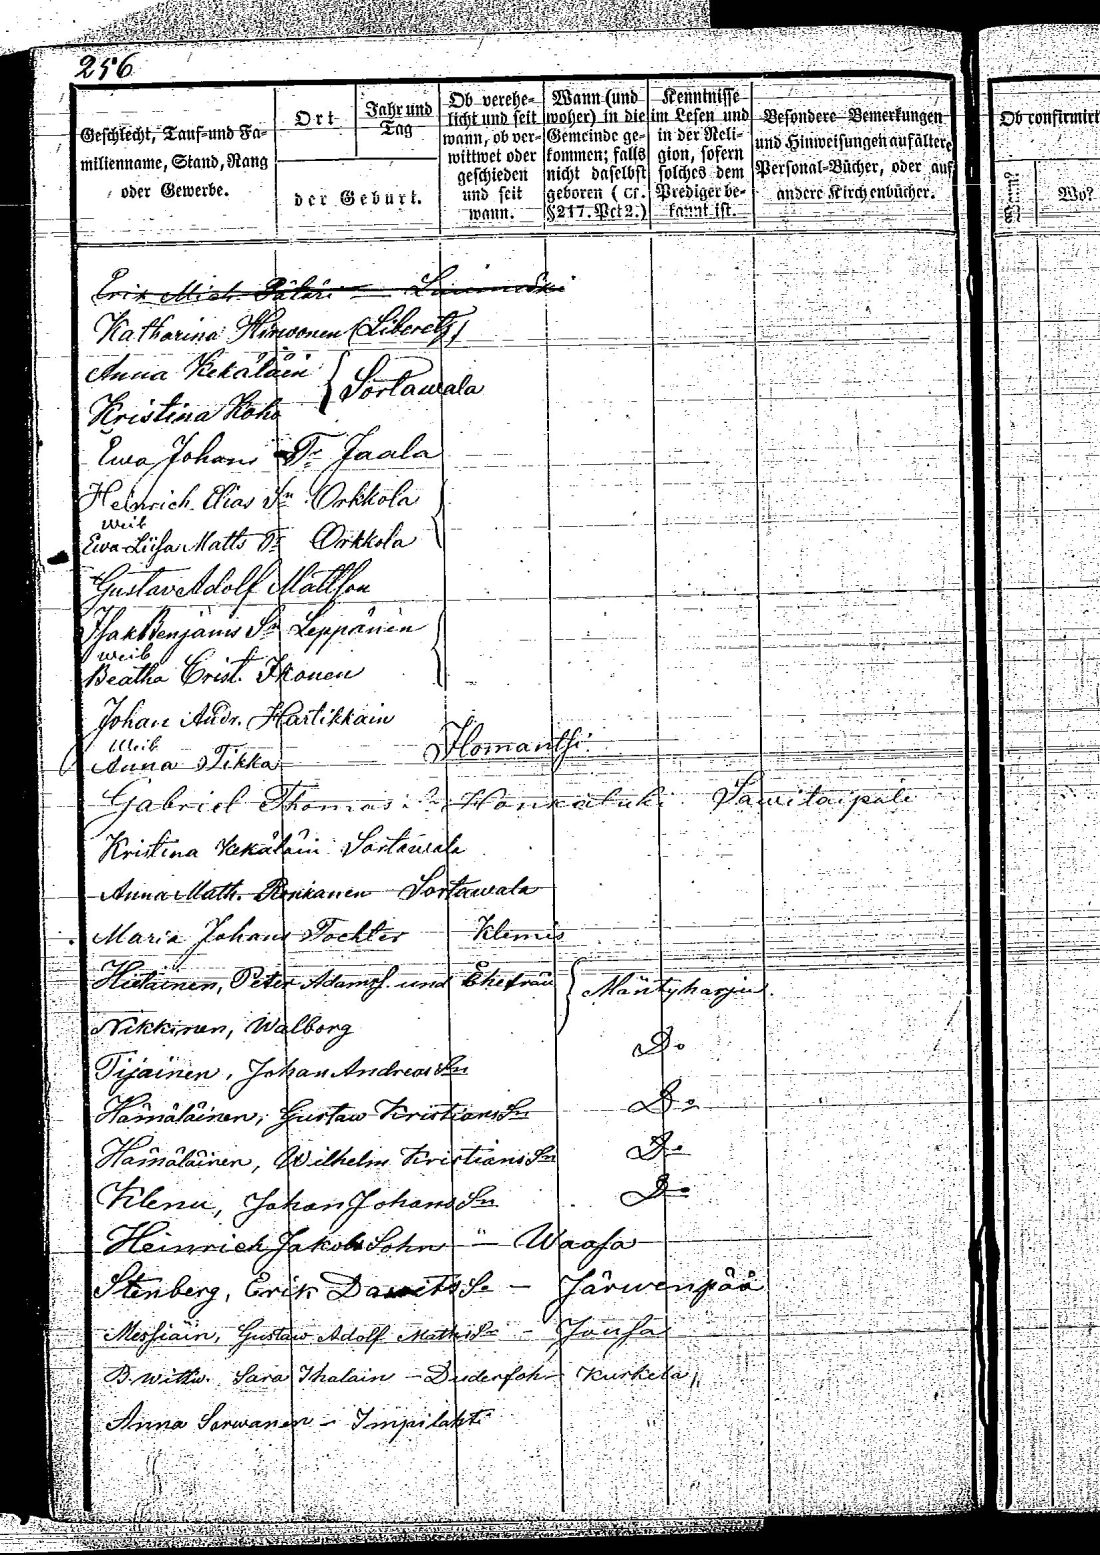 256
Geschlecht, Tauf- und Fa-
milienname, Stand, Rang
oder Gewerbe.
Ort
Jahr und
Tag
der Geburt.
Ob verehe-
licht und seit
wann, ob ver-
wittwet oder
geschieden
und seit
wann.
Wann (und
woher) in die
Gemeinde ge-
kommen; falls
nicht daselbst
geboren (cf.
§217. Pct 2.)
Kenntnisse
im Lesen und
in der Reli-
gion, sofern
solches dem
Prediger be-
kannt ist.
Besondere Bemerkungen
und Hinweisungen auf ältere
Personal-Bücher, oder auf
andere Kirchenbücher.
Ob confirmirt
Wann?
Wo?
Erik Mich.
Katharina Hirwonen (Liberetz)
Anna Kekäläin
Sortawala
Kristina Koho
Ewa Johans Tr Jaala
Heinrich Elias Sn Orkkola
Weib
Ewa Liisa Matts Tr Orkkola
Gustav Adolf Mattson
Isak Benjamis Sn Leppänen
Weib
Beatha Crist. Ikonen
Johan Andr. Hartikkain
Weib
Anna Tikka
Ilomantsi
Gabriel Thomas Sn Honkaluki Sawitaipale
Kristina Kekäläin Sortawala
Anna Math. Sortawala
Maria Johans Tochter Klemis
Hietainen, Peter Adams S. und Ehefrau
Mäntyharju
Nikkinen, Walborg
Do
Tijainen, Johan Andreas Sn
Hämäläinen, Gustaw Kristians Sn Do
Hämäläinen, Wilhelm Kristians Sn Do
Klenu, Johan Johans Sn Do
Heinrich Jakobs Sohn " - Waasa
Stenberg, Erik Dawits S. - Järwenpää
Messiäin, Gustaw Adolf Maths Sn - Joussa
B. Wittw. Sara Ihalain - Duderhof Kurkela
Anna Sorwanen - Impilahti